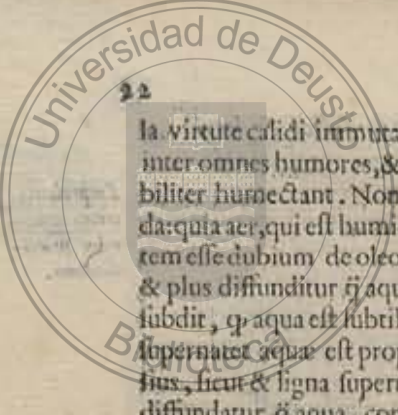 Universidad de Deusto
22
la virtute calidi immuta
inter omnes humores, &
biliter humectant. Non
da: quia aer, qui est humi
tem esse dubium de oleo
& plus diffunditur q̃ aqu
subdit, ꝙ aqua est subtil
supernatet aquæ est prop
sius, sicut & ligna supern
diffundatur q̃ aqua, con
Biblioteca